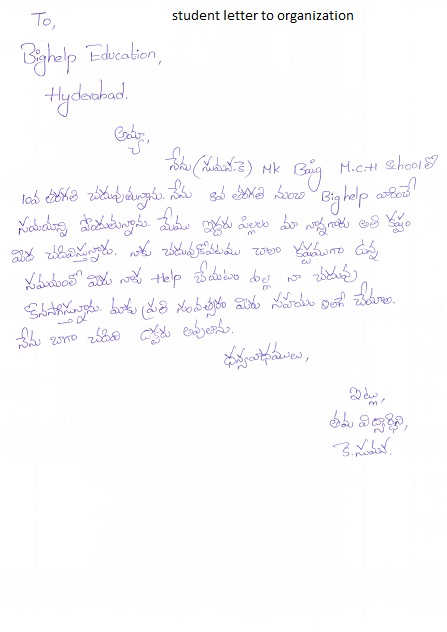 student letter to organization
To,
Bighelp Education,
Hyderabad.
అమ్మా,
నేను (సుమన.కె) MK Baig M.C.H School లో
10వ తరగతి చదువుతున్నాను. నేను 8వ తరగతి నుంచి Bighelp వారిచే
సహాయాన్ని పొందుతున్నాను. మేము ఇద్దరు పిల్లలం మా నాన్నగారు అతి కష్టం
మీద చదివిస్తున్నారు. నాకు చదువుకోవటము చాలా కష్టముగా ఉన్న
సమయంలో మీరు నాకు Help చేయటం వల్ల నా చదువు
కొనసాగిస్తున్నాను. మాకు ప్రతి సంవత్సరం మీరు సహాయం ఇలాగే చేయాలి.
నేను బాగా చదివి డాక్టరు అవుతాను.
ధన్యవాదములు,
ఇట్లు,
తమ విద్యార్థిని,
కె.సుమన.